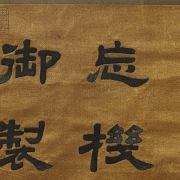 忘機
御製